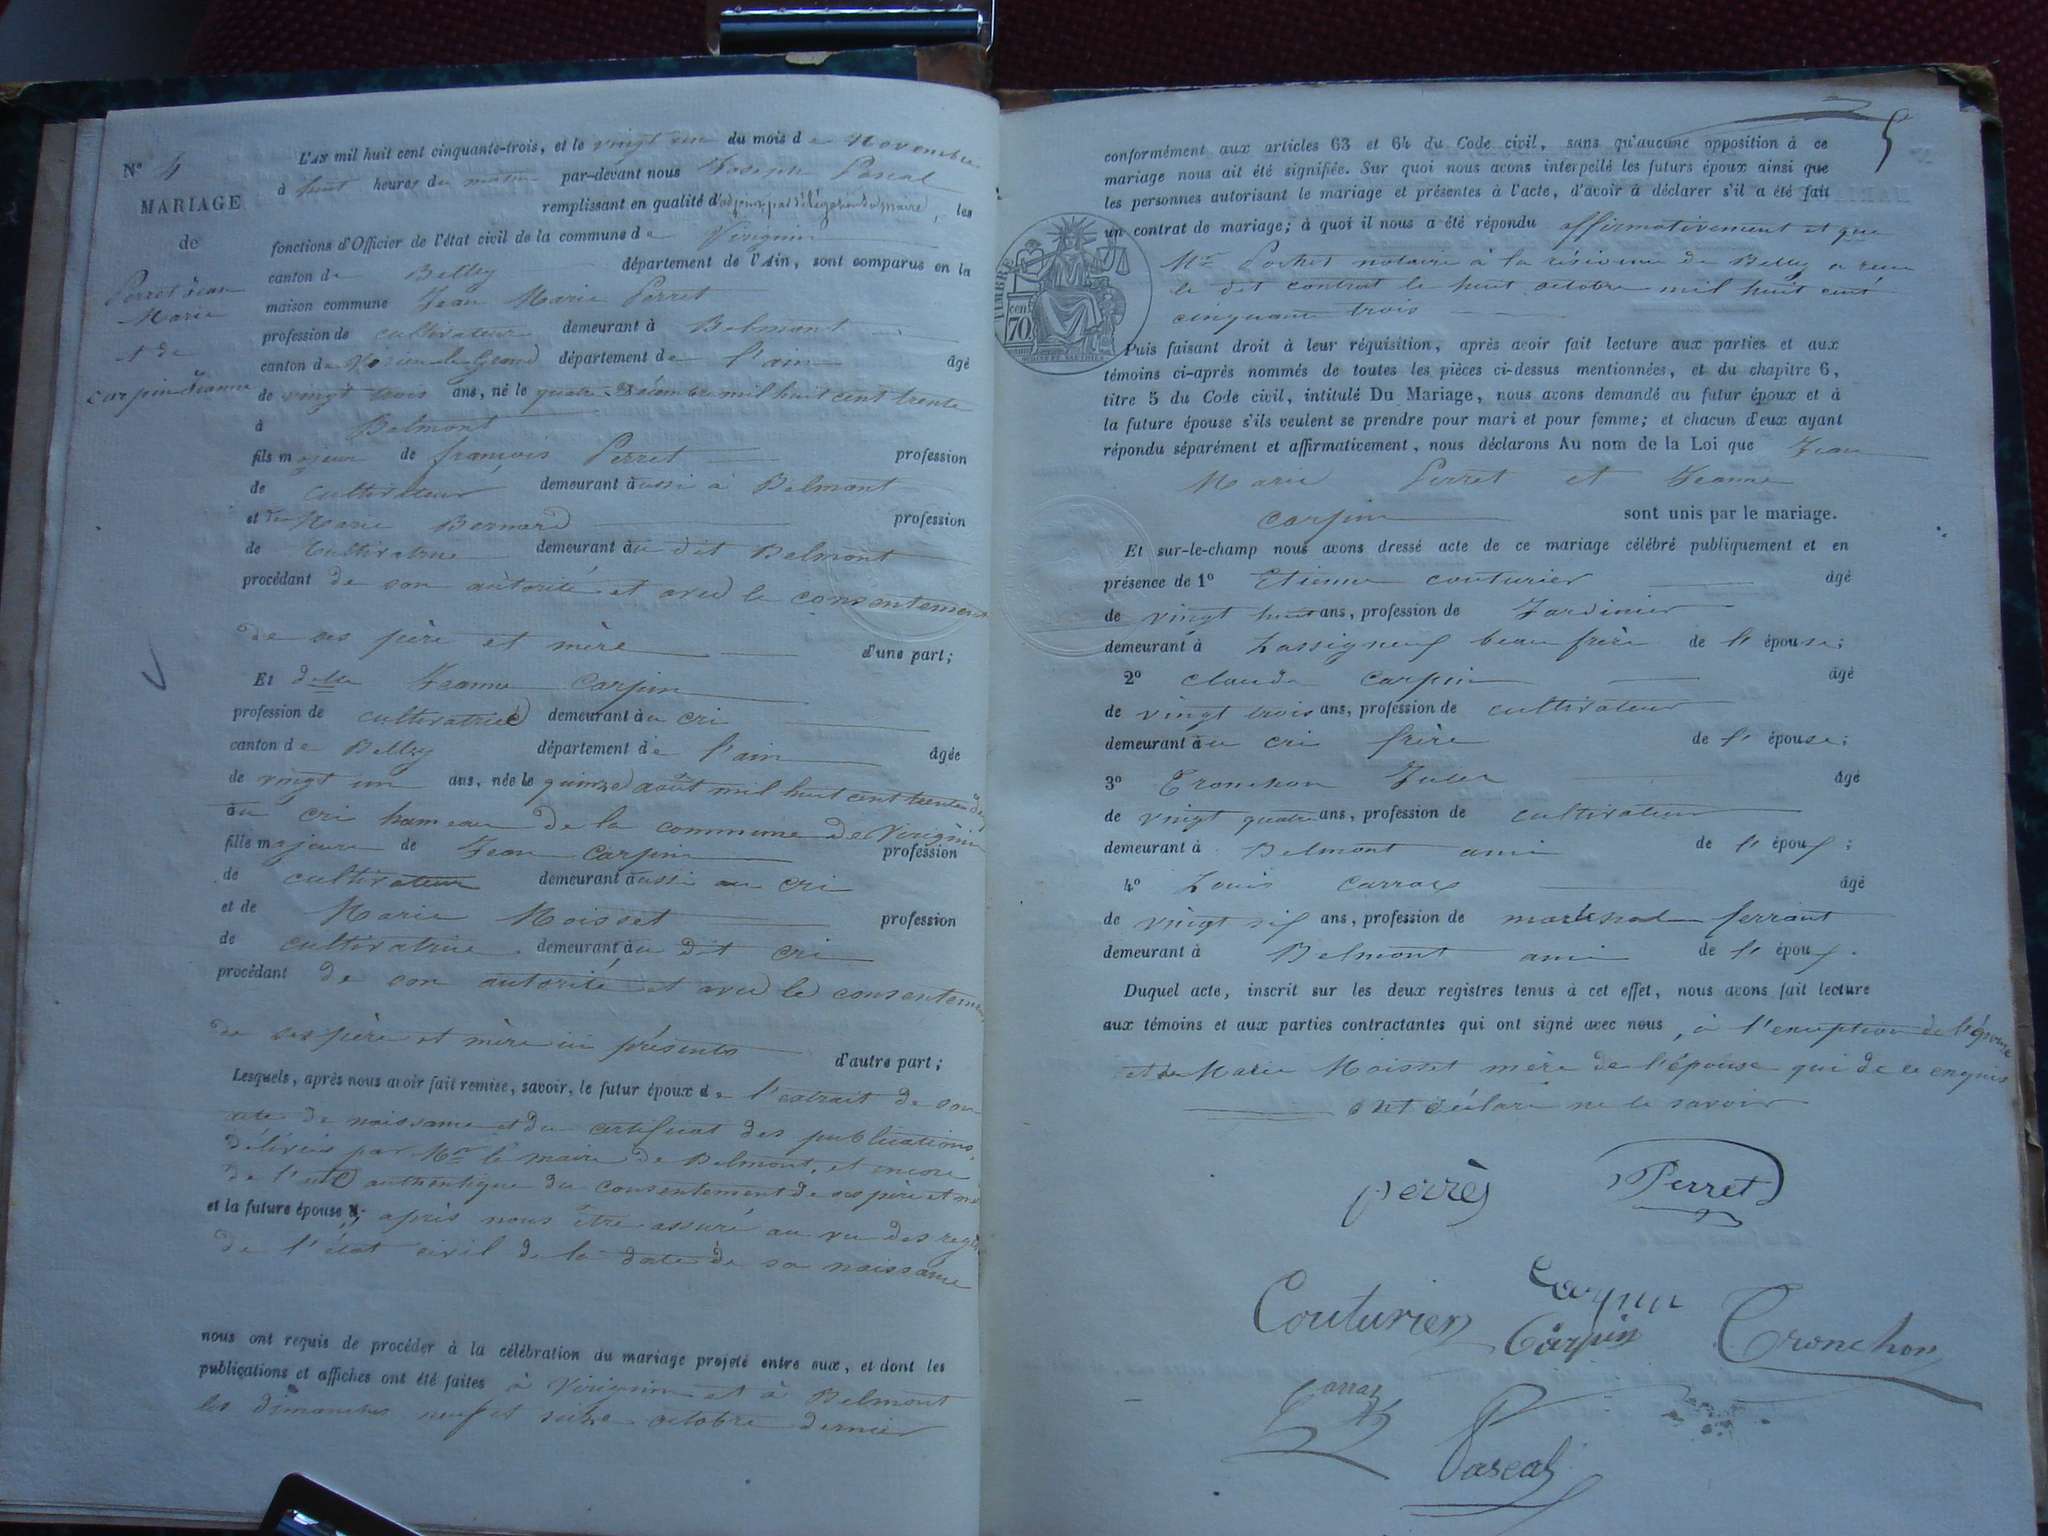 N° 4
MARIAGE
de
Perret Jean
Marie
et de
Carpin Jeanne
L'AN mil huit cent cinquante-trois, et le vingt un du mois de Novembre
à huit heures du matin par-devant nous Joseph Pascal
remplissant en qualité d'adjoint par délégation du maire, les
fonctions d'Officier de l'état civil de la commune de Virignin
canton de Belley département de l'Ain, sont comparus en la
maison commune Jean Marie Perret
profession de cultivateur demeurant à Belmont
canton de Virieu le Grand département de l'ain âgé
de vingt trois ans, né le quatre Décembre mil huit cent trente
à Belmont
fils majeur de françois Perret profession
de cultivateur demeurant à aussi à Belmont
et de Marie Bernard profession
de Cultivatrice demeurant à u dit Belmont
procédant de son autorité et avec le consentement
de ses père et mère d'une part;
Et delle Jeanne Carpin
profession de cultivatrice demeurant à u cri
canton de Belley département de l'ain âgée
de vingt un ans, née le quinze août mil huit cent trente deux
au cri hameau de la commune de Virignin
fille majeure de Jean Carpin profession
de cultivateur demeurant à aussi au cri
et de Marie Moisset profession
de cultivatrice demeurant à u dit cri
procédant de son autorité et avec le consentement
de ses père et mère ici présents d'autre part;
Lesquels, après nous avoir fait remise, savoir, le futur époux de l'extrait de son
acte de naissance et du certificat des publications,
délivrés par Mr le maire de Belmont, et encore
de l'acte authentique du consentement de ses père et mère
et la future épouse, après nous être assuré au vu des registres
de l'état civil de la date de sa naissance
nous ont requis de procéder à la célébration du mariage projeté entre eux, et dont les
publications et affiches ont été faites à Virignin et à Belmont
les dimanches neuf et seize octobre dernier
5
conformément aux articles 63 et 64 du Code civil, sans qu'aucune opposition à ce
mariage nous ait été signifiée. Sur quoi nous avons interpellé les futurs époux ainsi que
les personnes autorisant le mariage et présentes à l'acte, d'avoir à déclarer s'il a été fait
un contrat de mariage; à quoi il nous a été répondu affirmativement et que
Mr Pochet notaire à la résidence de Belley a reçu
le dit contrat le huit octobre mil huit cent
cinquante trois
TIMBRE
cent
70
Puis faisant droit à leur réquisition, après avoir fait lecture aux parties et aux
témoins ci-après nommés de toutes les pièces ci-dessus mentionnées, et du chapitre 6,
titre 5 du Code civil, intitulé Du Mariage, nous avons demandé au futur époux et à
la future épouse s'ils veulent se prendre pour mari et pour femme; et chacun d'eux ayant
répondu séparément et affirmativement, nous déclarons Au nom de la Loi que Jean
Marie Perret et Jeanne
Carpin sont unis par le mariage.
Et sur-le-champ nous avons dressé acte de ce mariage célébré publiquement et en
présence de 1° Etienne Couturier âgé
de vingt huit ans, profession de Jardinier
demeurant à beau frère de l' épouse;
2° Claude Carpin âgé
de vingt trois ans, profession de cultivateur
demeurant à u cri frère de l' épouse;
3° Tronchon Jules âgé
de vingt quatre ans, profession de cultivateur
demeurant à Belmont ami de l' époux;
4° Louis Carraz âgé
de vingt six ans, profession de maréchal ferrant
demeurant à Belmont ami de l' époux.
Duquel acte, inscrit sur les deux registres tenus à cet effet, nous avons fait lecture
aux témoins et aux parties contractantes qui ont signé avec nous, à l'exception de l'épouse
et de Marie Moisset mère de l'épouse qui de ce enquis
ont déclaré ne le savoir
perrès Perret
Carpin
Couturier Carpin Tronchon
Carraz
Pascal